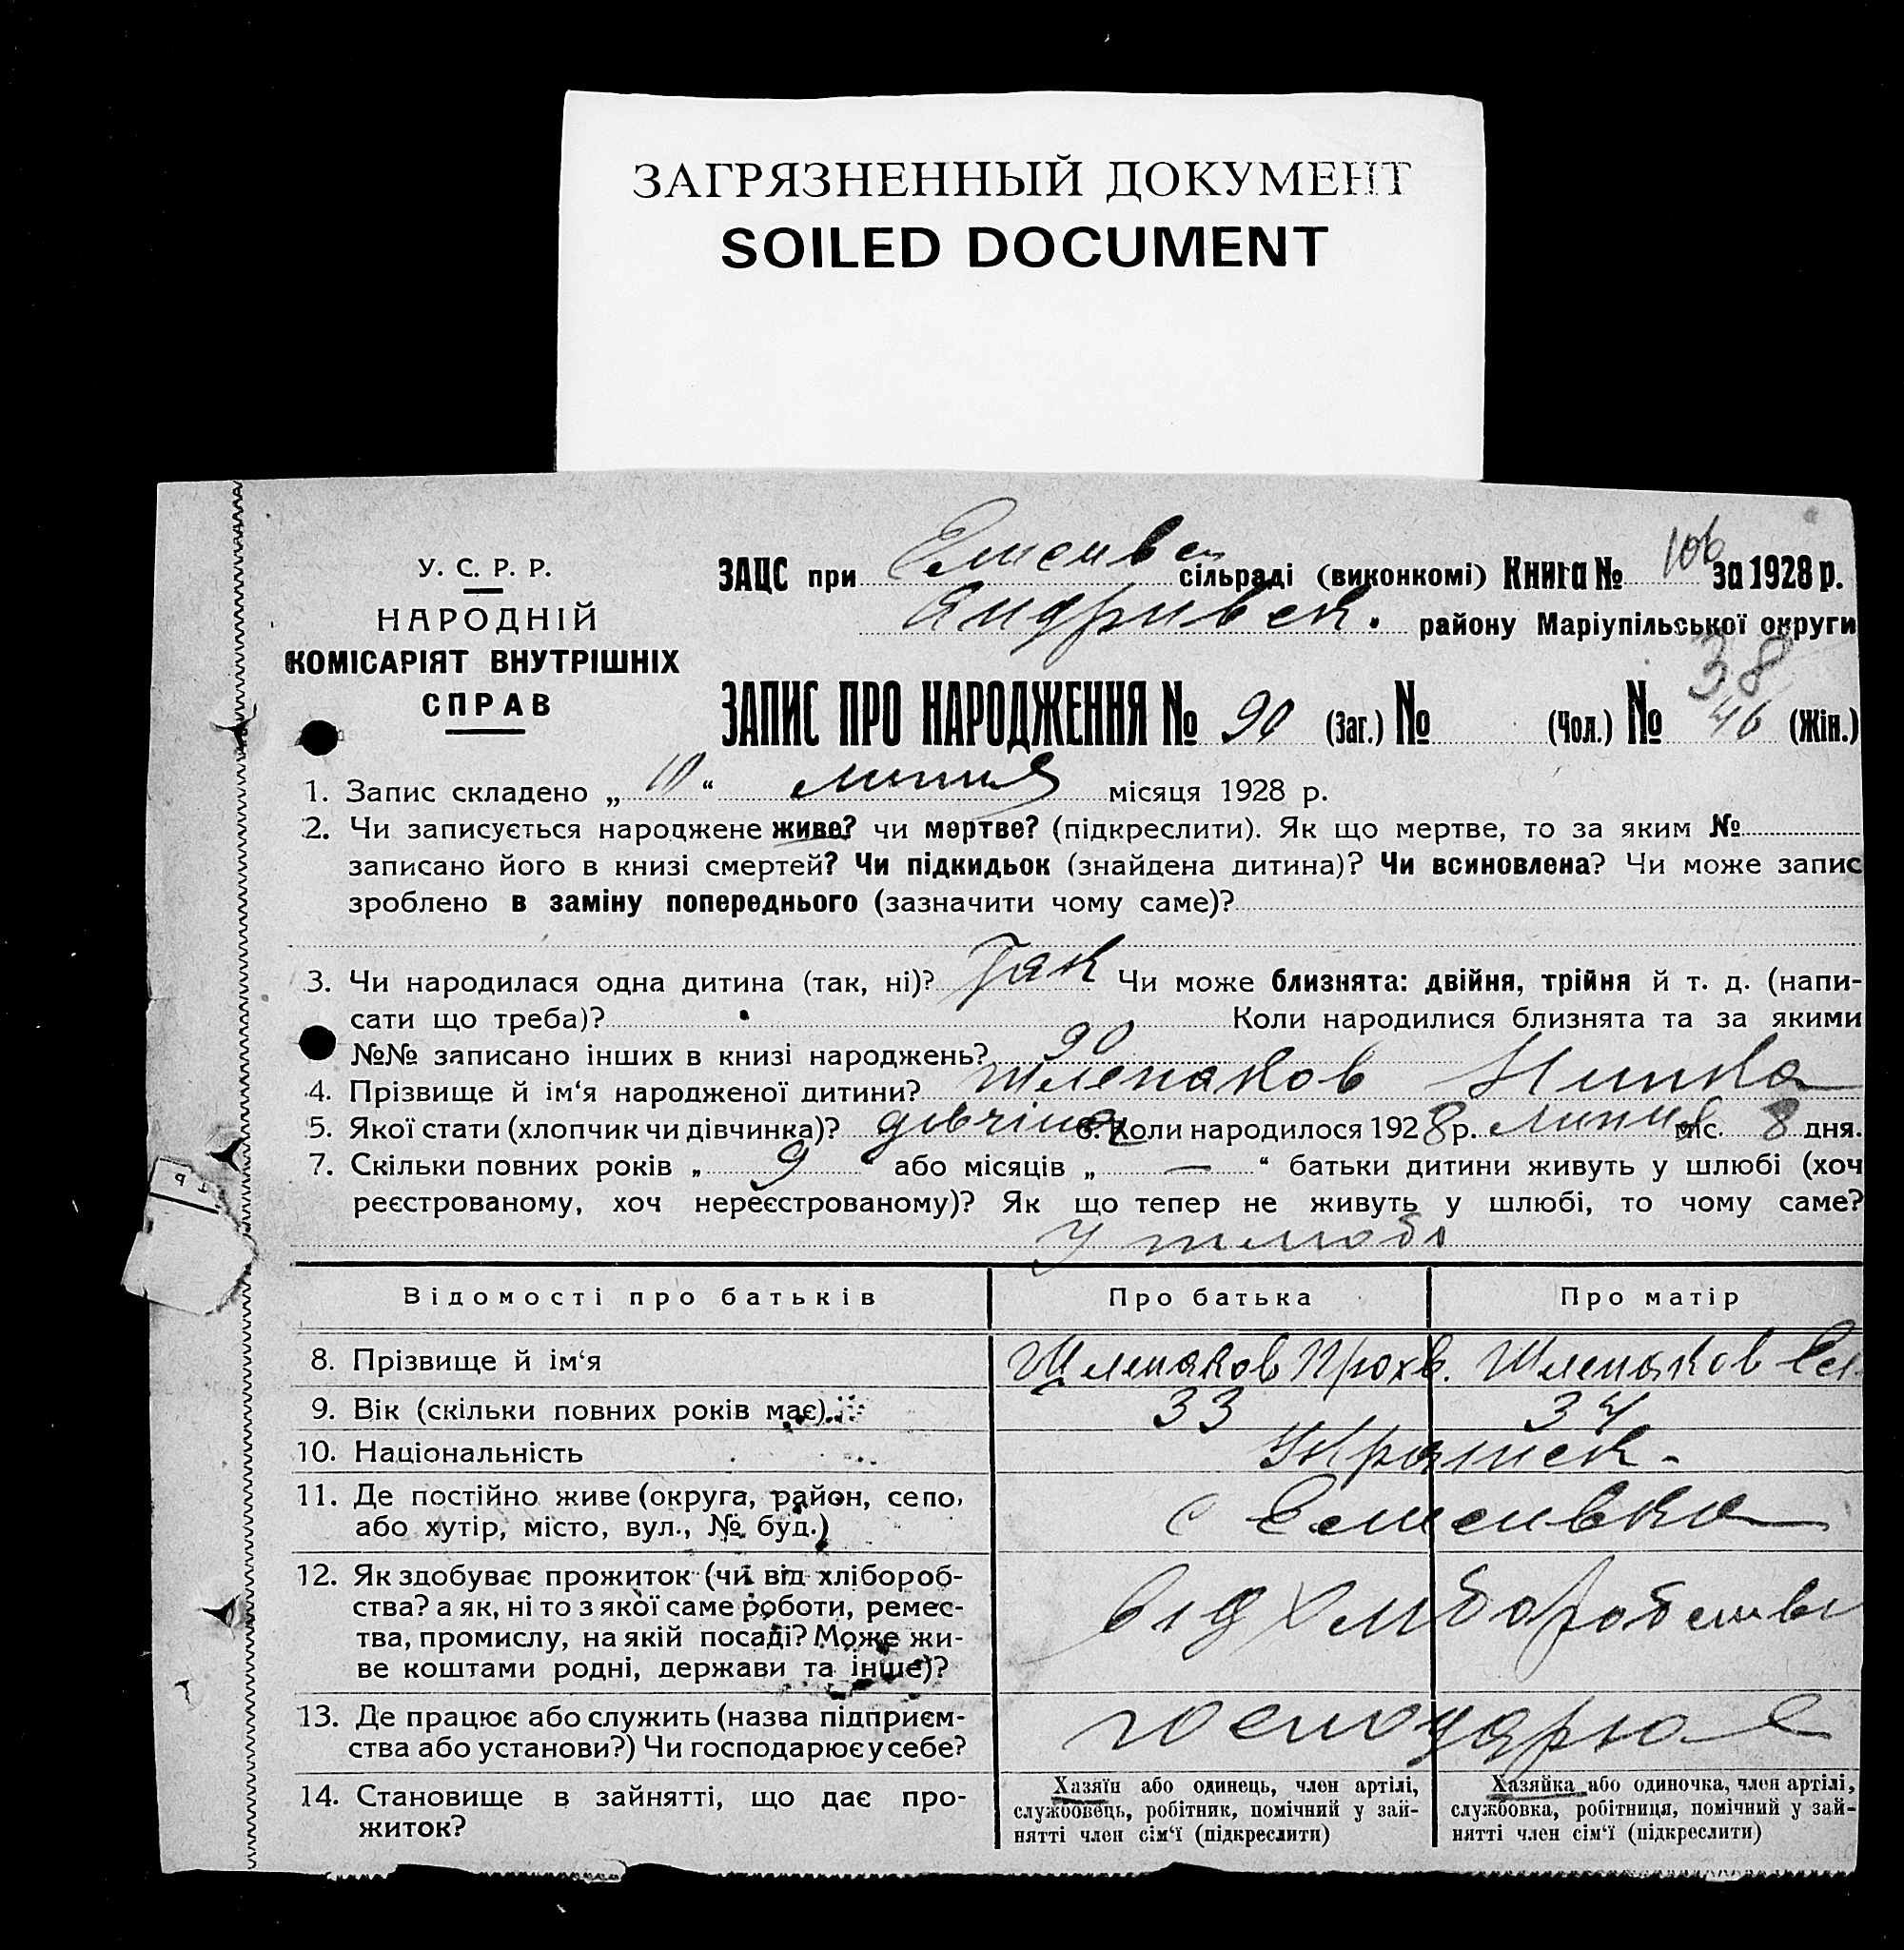 ЗАГРЯЗНЕННЫЙ ДОКУМЕНТ
SOILED DOCUMENT
У. С. Р. Р.
НАРОДНІЙ
КОМІСАРІЯТ ВНУТРІШНІХ
СПРАВ
ЗАЦС при сільраді (виконкомі) Книга № 106 за 1928 р.
Андривск. району Маріупільської округи
38
ЗАПИС ПРО НАРОДЖЕННЯ № 90 (Заг.) № (Чол.) № 46 (Жін.)
1. Запис складено „10“ липня місяця 1928 р.
2. Чи записується народжене живе? чи мертве? (підкреслити). Як що мертве, то за яким №
записано його в книзі смертей? Чи підкидьок (знайдена дитина)? Чи всиновлена? Чи може запис
зроблено в заміну попереднього (зазначити чому саме)?
3. Чи народилася одна дитина (так, ні)? Так Чи може близнята: двійня, трійня й т. д. (напи-
сати що треба)? Коли народилися близнята та за якими
№№ записано інших в книзі народжень? 90
4. Прізвище й ім‘я народженої дитини? Шлепаков Нинка
5. Якої стати (хлопчик чи дівчинка)? дівчіна 6. Коли народилося 1928 р. липня міс. 8 дня.
7. Скільки повних років „ 9 “ або місяців „ — “ батьки дитини живуть у шлюбі (хоч
реєстрованому, хоч нереєстрованому)? Як що тепер не живуть у шлюбі, то чому саме?
У шлюбі
Відомості про батьків Про батька Про матір
8. Прізвище й ім‘я Шлепаков Прохв. Шлепаков
9. Вік (скільки повних років має) 33 34
10. Національність Украінск.
11. Де постійно живе (округа, район, село,
або хутір, місто, вул., № буд.) с
12. Як здобуває прожиток (чи від хлібороб-
ства? а як, ні то з якої саме роботи, ремес-
тва, промислу, на якій посаді? Може жи-
ве коштами родні, держави та інше)?
від хліборобства
13. Де працює або служить (назва підприєм-
ства або установи?) Чи господарює у себе?
господарює
14. Становище в зайнятті, що дає про-
житок?
Хазяїн або одинець, член артілі,
службовець, робітник, помічний у зай-
нятті член сім‘ї (підкреслити)
Хазяйка або одиночка, член артілі,
службовка, робітниця, помічний у зай-
нятті член сім‘ї (підкреслити)